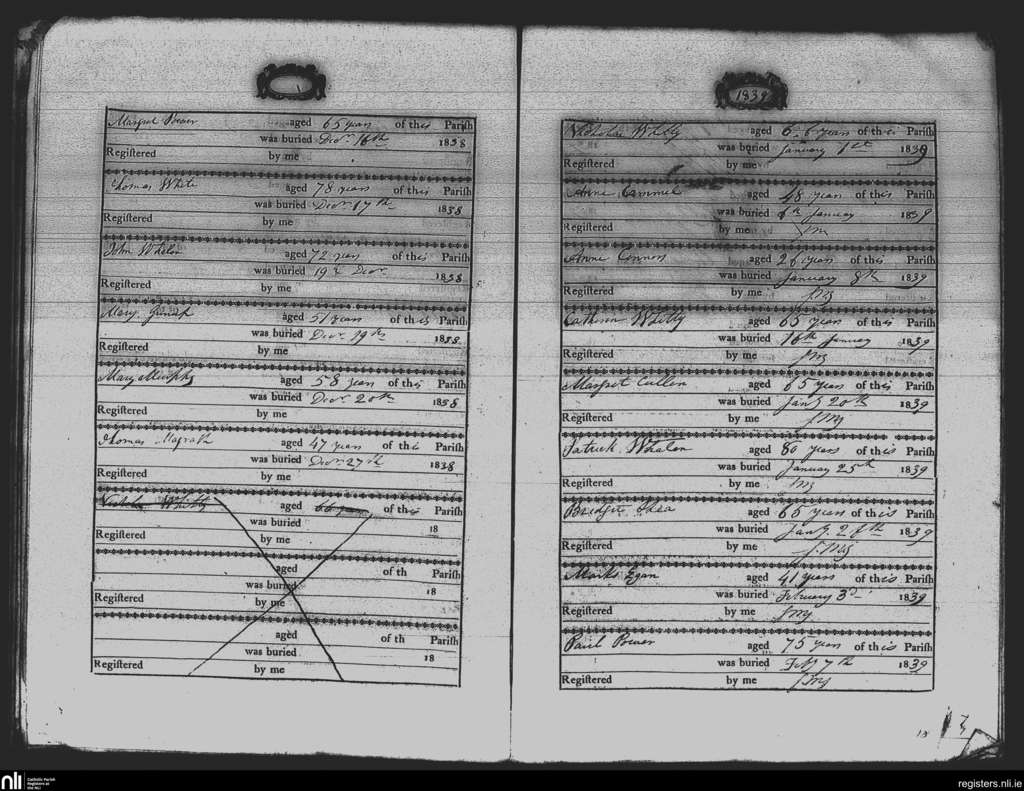 Margret Power aged 65 years of this Parish
was buried Decr. 16th 1838
Registered by me
Thomas White aged 78 years of this Parish
was buried Decr. 17th 1838
Registered by me
John Whelan aged 72 years of this Parish
was buried 19th Decr. 1838
Registered by me
Mary aged 51 years of this Parish
was buried Decr. 19th 1838
Registered by me
Mary Murphy aged 58 years of this Parish
was buried Decr. 20th 1838
Registered by me
Thomas Magrath aged 47 years of this Parish
was buried Decr. 27th 1838
Registered by me
Whitty aged 66 years of this Parish
was buried 18
Registered by me
aged of th Parish
was buried 18
Registered by me
aged of th Parish
was buried 18
Registered by me
1839
Nicholas Whitty aged 66 years of this Parish
was buried January 1st 1839
Registered by me
Anne aged 48 years of this Parish
was buried 6th January 1839
Registered by me
Anne Connors aged 26 years of this Parish
was buried January 8th 1839
Registered by me
Whitty aged 65 years of this Parish
was buried 16th January 1839
Registered by me
Margret Cullen aged 65 years of this Parish
was buried Jany 20th 1839
Registered by me
Patrick Whalen aged 80 years of this Parish
was buried January 25th 1839
Registered by me
Bridget Shea aged 65 years of this Parish
was buried Jany. 28th 1839
Registered by me
Marks Egan aged 41 years of this Parish
was buried February 3d 1839
Registered by me
Paul Power aged 75 years of this Parish
was buried Feby 7th 1839
Registered by me
13
nli Catholic Parish
Registers at
the NLI
registers.nli.ie